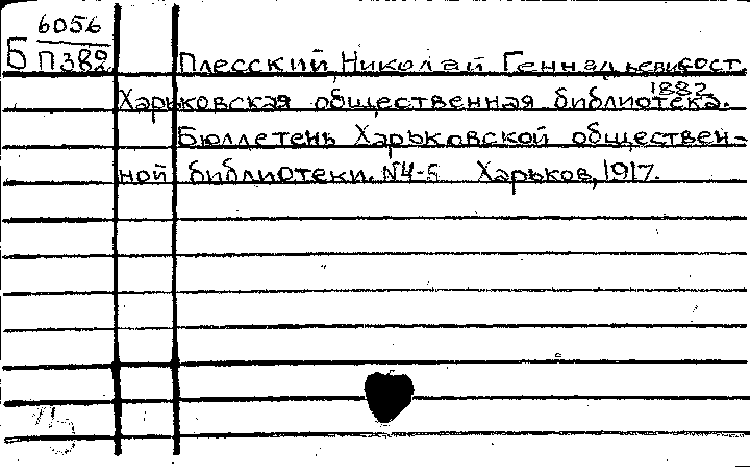 6056
Б П382 Плесский, Николай Геннадьевич сост.
1882
Харьковская общественная библиотека.
Бюллетень Харьковской обществен-
ной библиотеки. №4-5 Харьков, 1917.